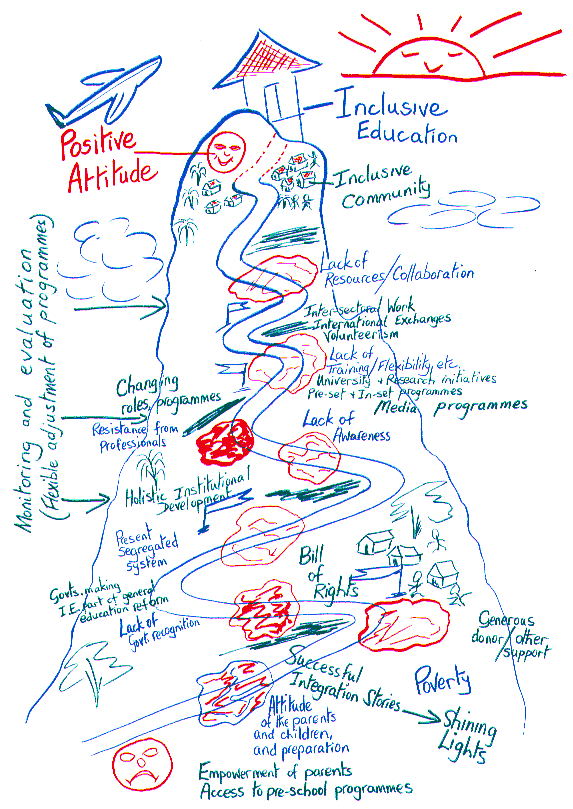 Inclusive
Education
Positive
Attitude
Inclusive
Community
Monitoring and evaluation
(Flexible adjustment of programmes)
Lack of
Resources/Collaboration
Inter-sectural Work
International Exchanges
Volunteerism
Lack of
Training/Flexibility, etc.
University + Research initiatives
Pre-set + In-set programmes
Media programmes
Changing
roles, programmes
Resistance from
Professionals
Lack of
Awareness
Holistic Institutional
Development
Present
segregated
system
Bill
of
Rights
Govts. making
I.E. part of general
education reform
Lack of
Govt. recognition
Generous
donor/other
support
Successful
Integration Stories
Poverty
Shining
Lights
Attitude
of the parents
and children,
and preparation
Empowerment of parents
Access to pre-school programmes